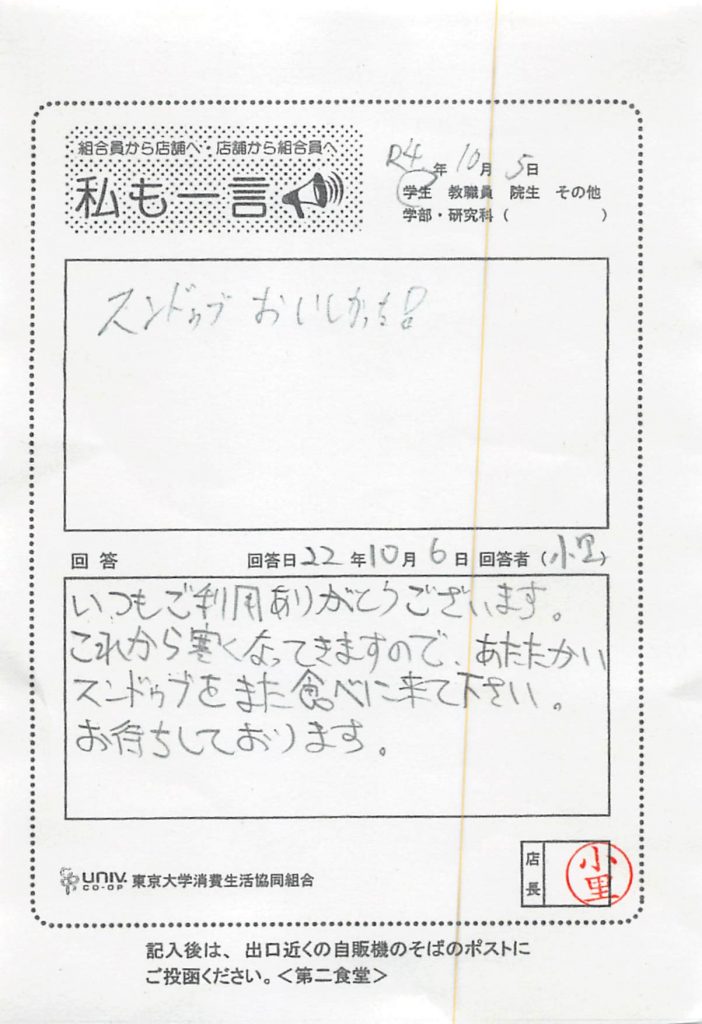 組合員から店舗へ・店舗から組合員へ
私も一言
R4年10月5日
学生 教職員 院生 その他
学部・研究科( )
スンドゥブ おいしかった!
回答 回答日22年10月6日 回答者(小里)
いつもご利用ありがとうございます。
これから寒くなってきますので、あたたかい
スンドゥブをまた食べに来て下さい。
お待ちしております。
店長 小里
UNIV. CO-OP 東京大学消費生活協同組合
記入後は、出口近くの自販機のそばのポストに
ご投函ください。<第二食堂>